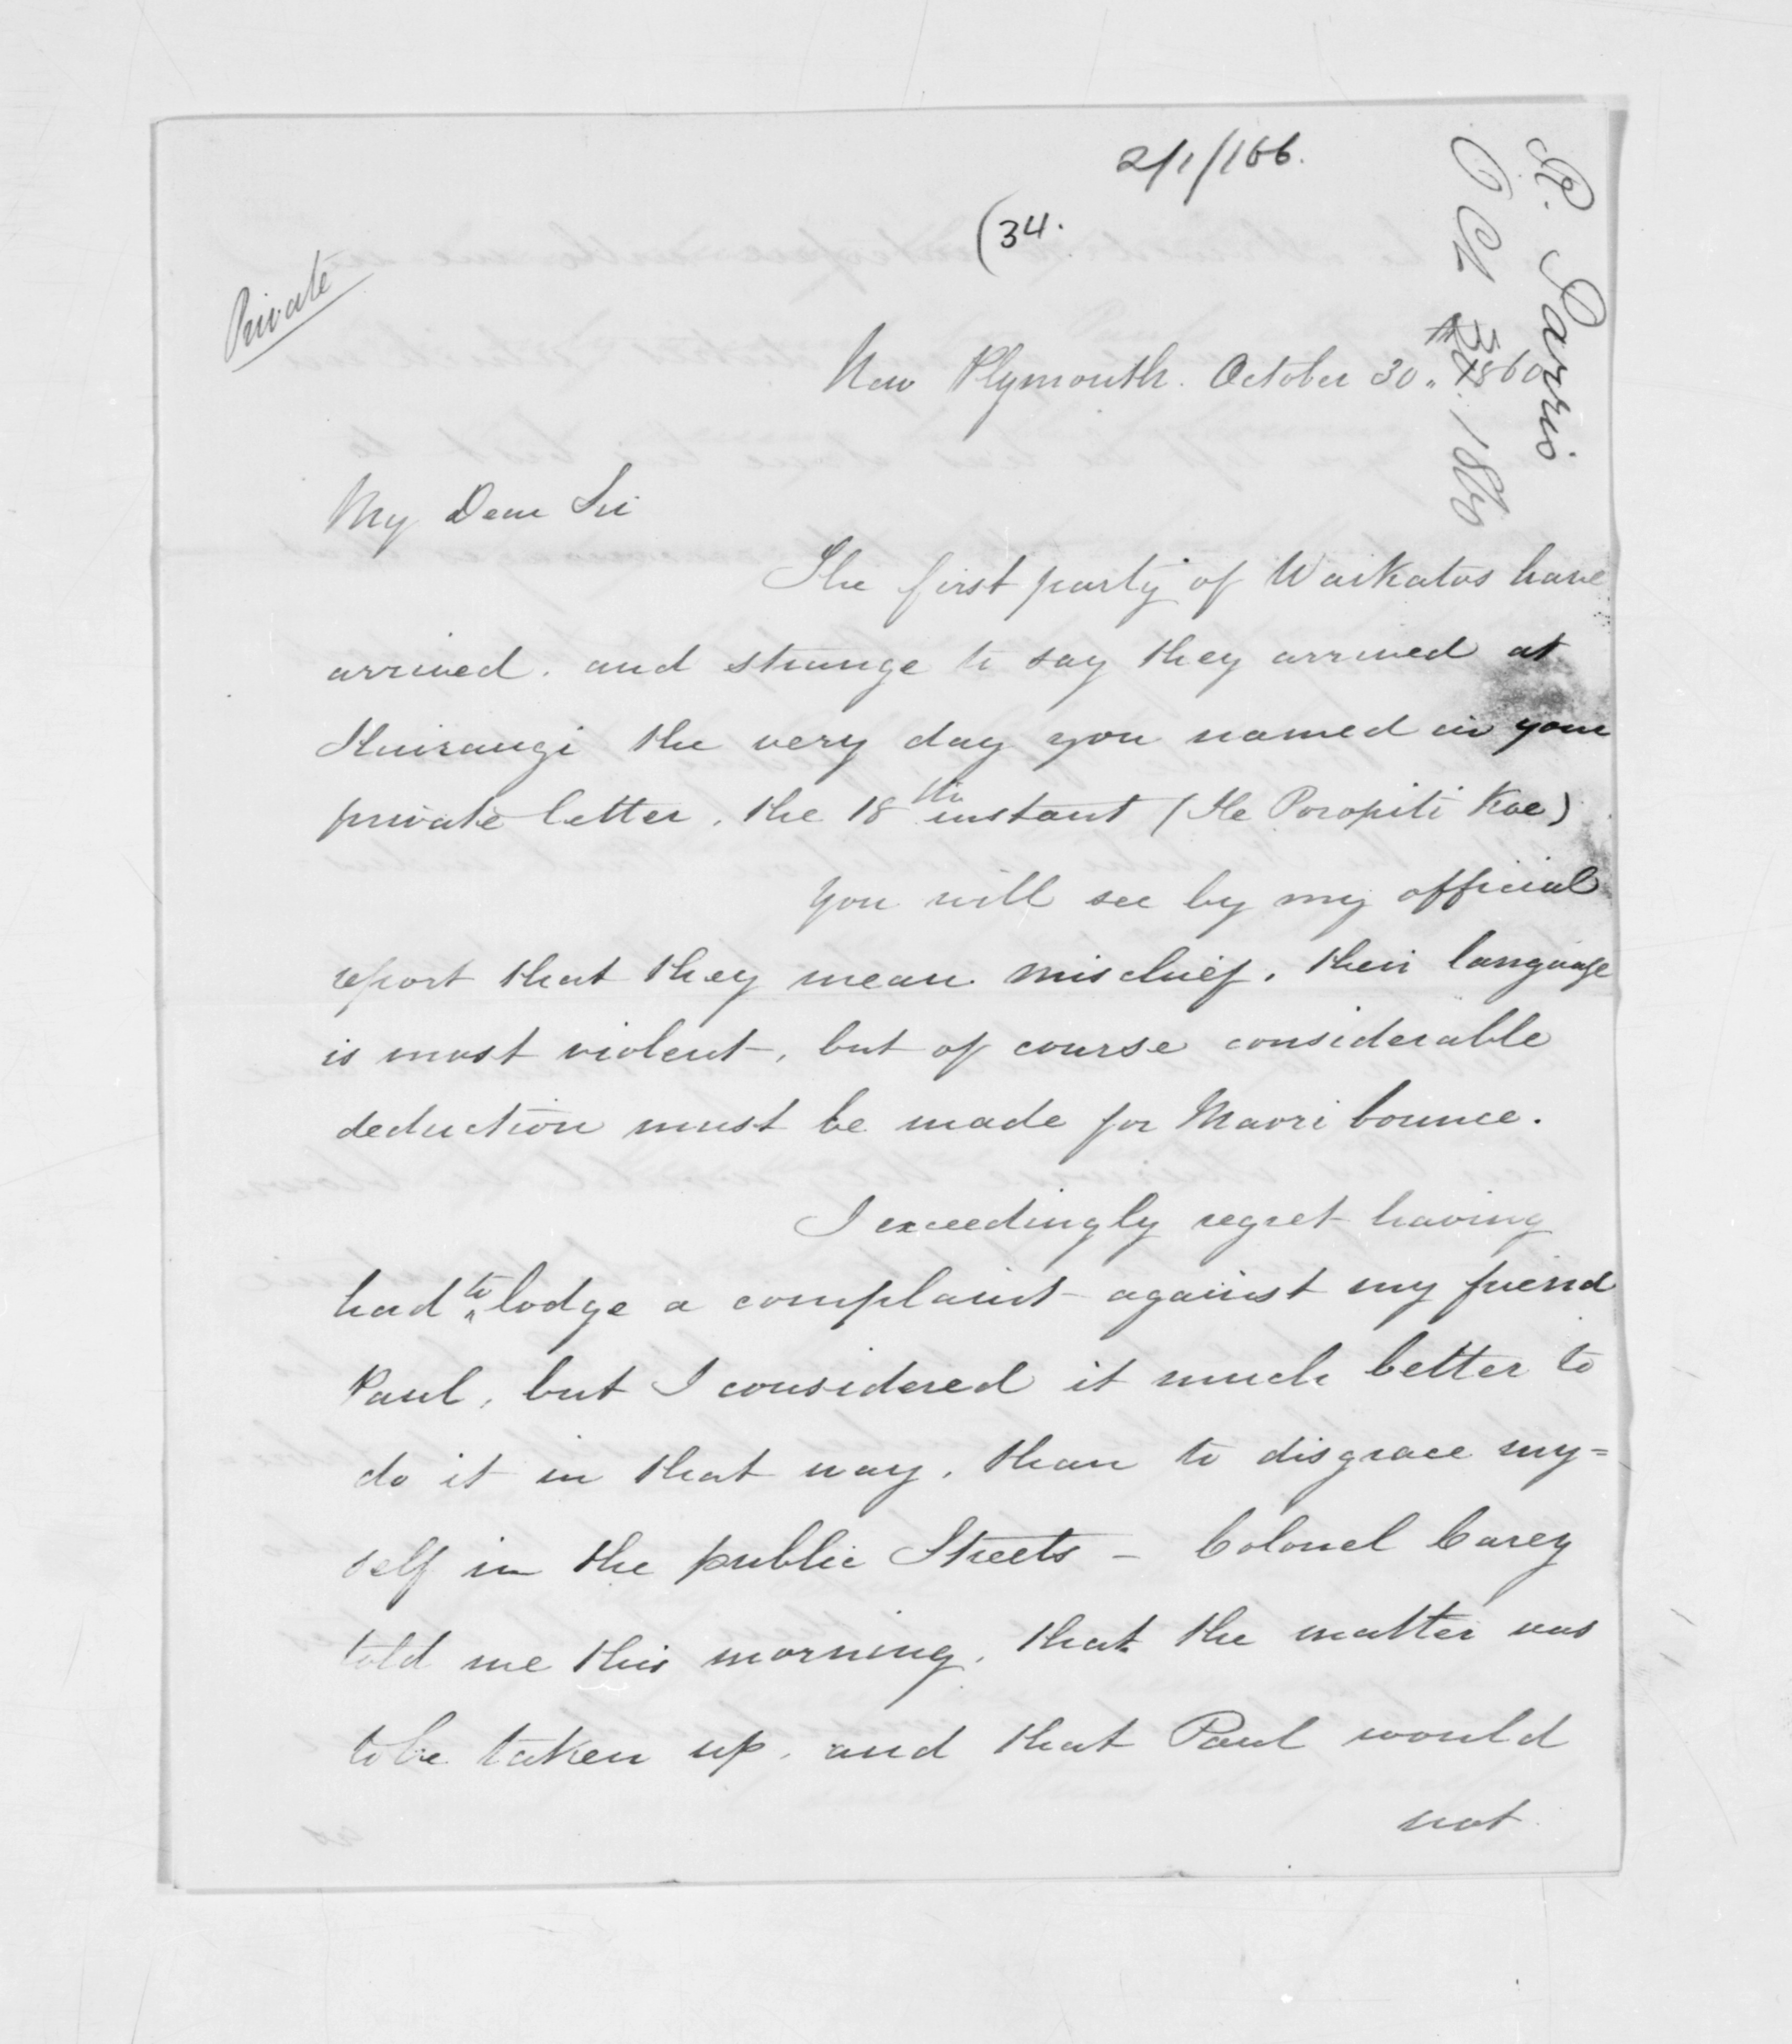 2/1/166.
(34.
R. Parris
Oct 30th. 1860
Private
New Plymouth. October 30th 1860
My Dear Sir
The first party of Waikatos have
arrived. and strange to say they arrived at
Huirangi the very day you named in your
private letter, the 18th instant (He Poropiti Koe)
You will see by my official
report that they mean mischief, their language
is most violent, but of course considerable
deduction must be made for Maori bounce.
I exceedingly regret having
had to lodge a complaint against my friend
Paul, but I considered it much better to
do it in that way, than to disgrace my=
self in the public Streets - Colonel Carey
told me this morning, that the matter was
to be taken up, and that Paul would
not